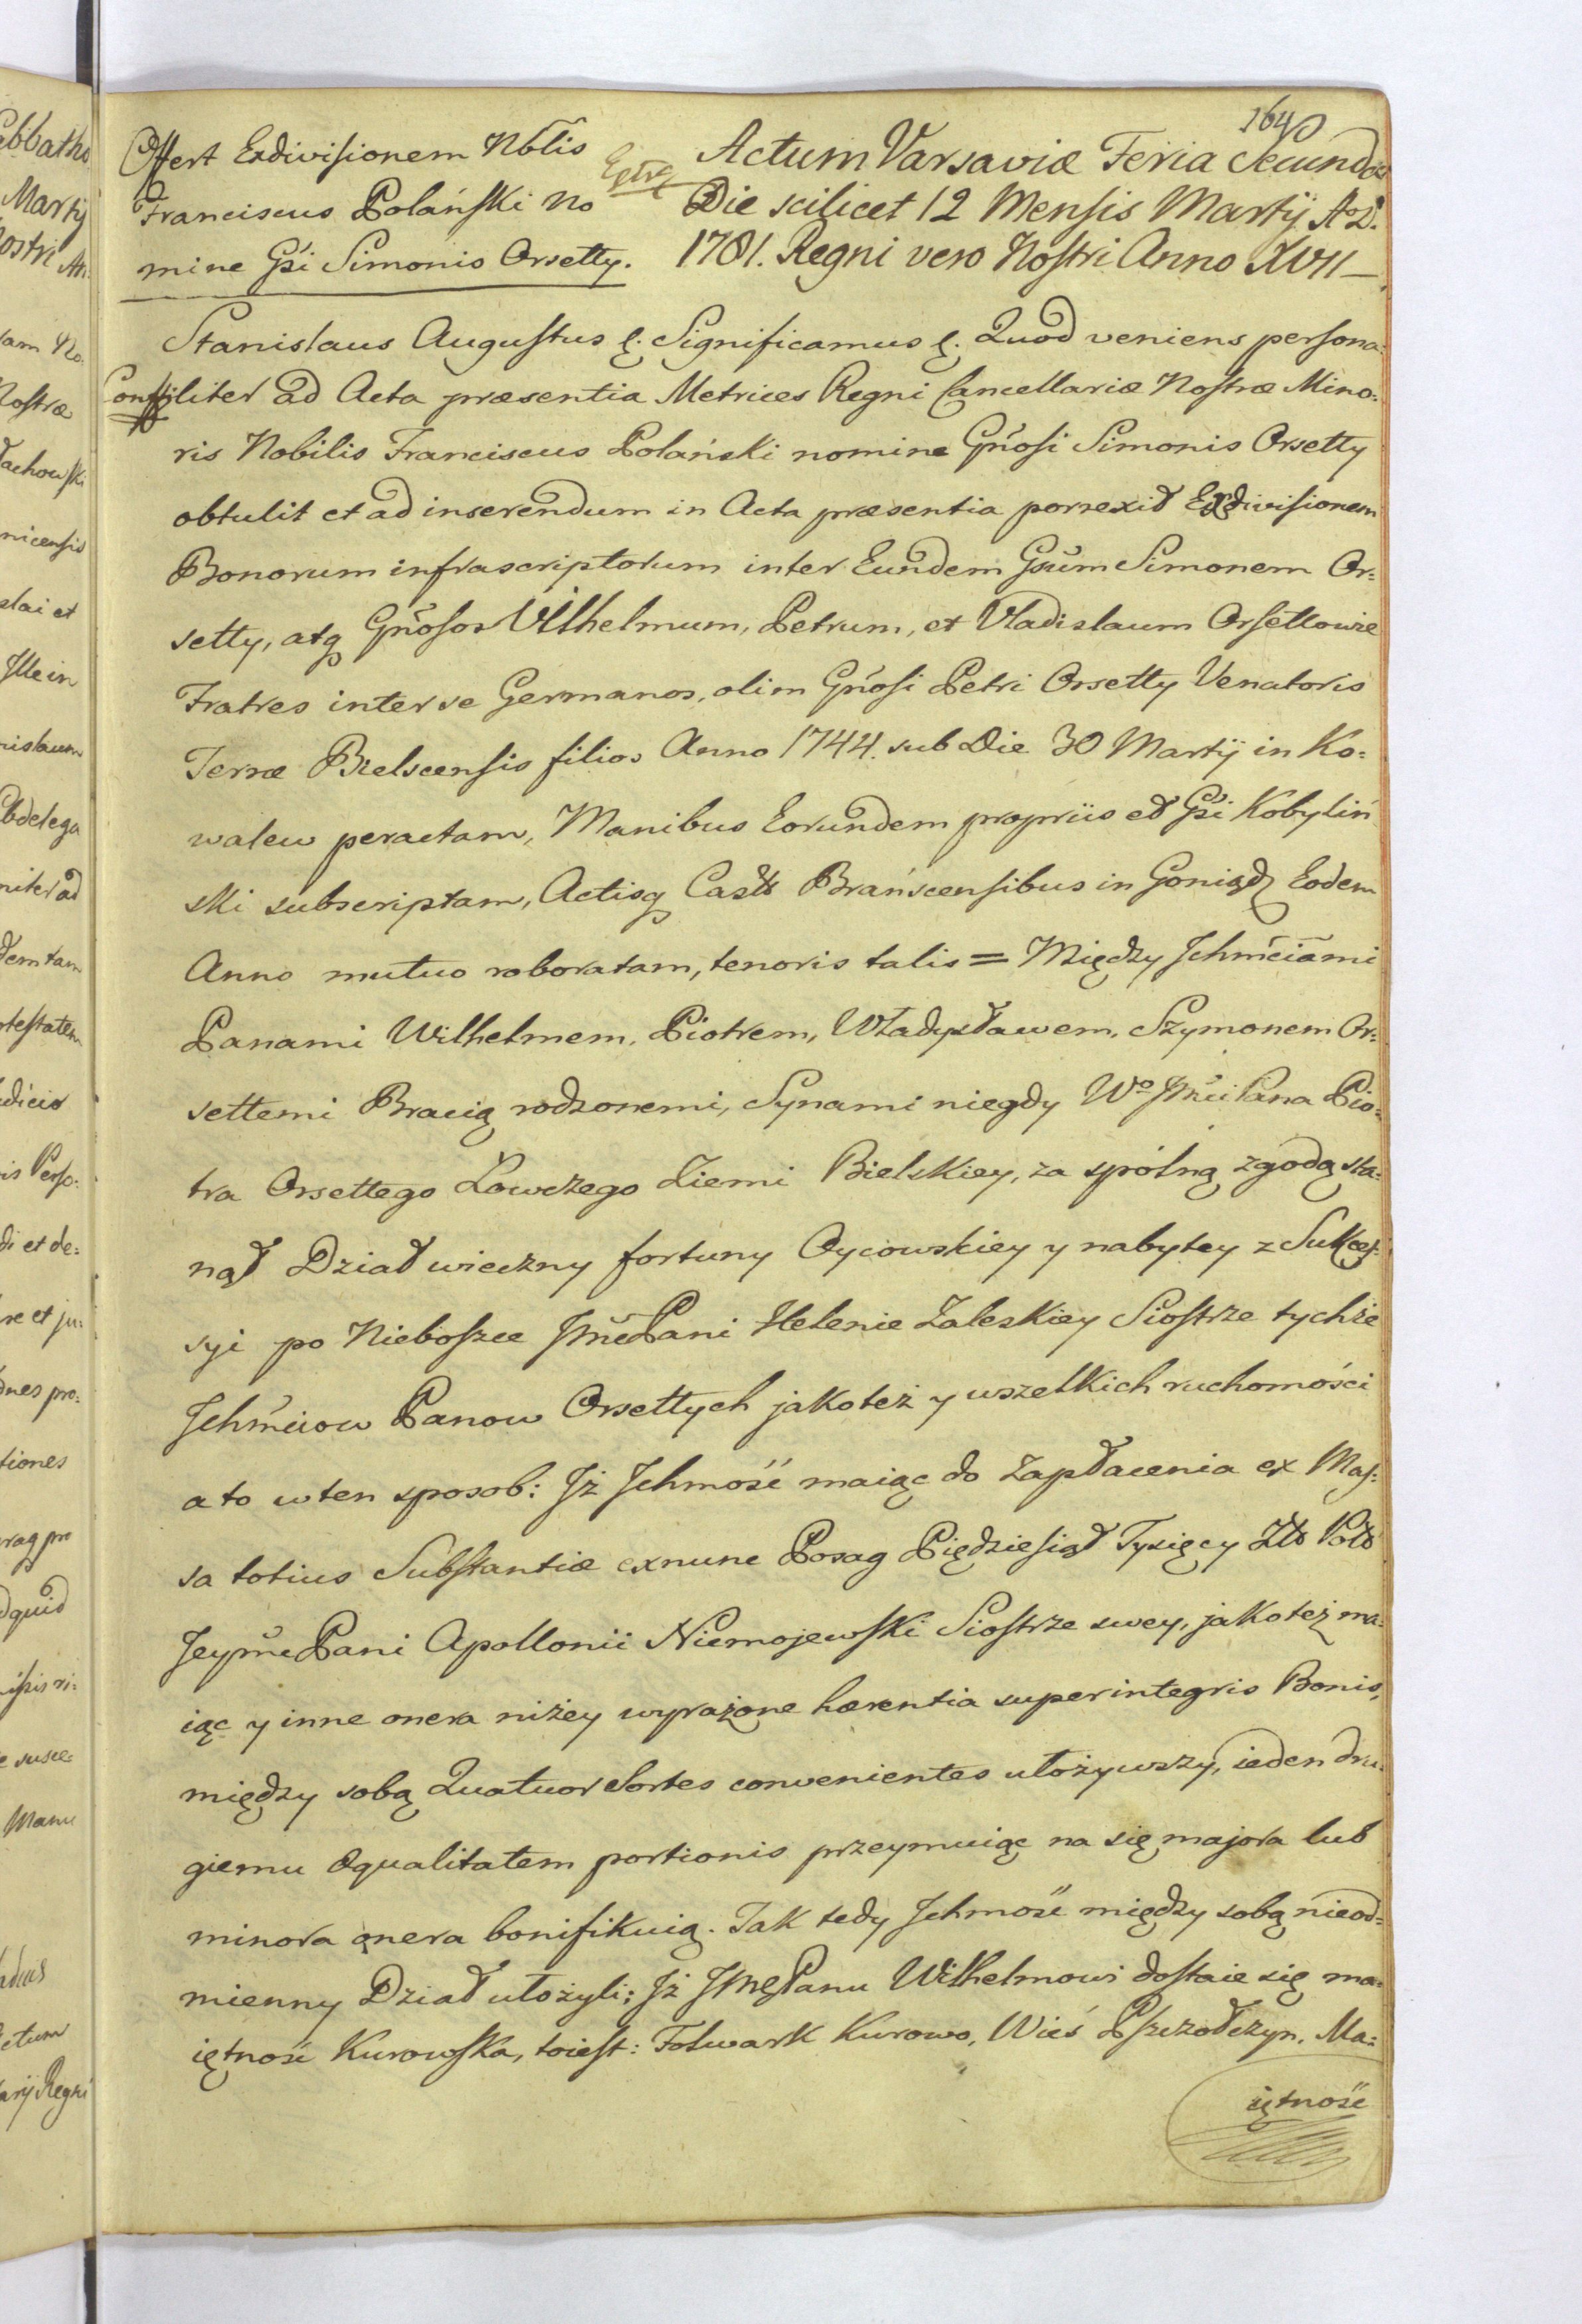 164
Offert Exdivisionem Nõlis
Franciscus Polański No
mine Gsi Simonis Orsetty.
Extra
Actum Varsaviæ Feria Secunda
Die scilicet 12 Mensis Martÿ A. D.
1781. Regni vero Nostri Anno XVII
Stanislaus Augustus &. Significamus &. Quod veniens persona:
liter ad Acta præsentia Metrices Regni Cancellariæ Nostræ Mino:
ris Nobilis Franciscus Polański nomine Gñosi Simonis Orsetty
obtulit et ad inserendum in Acta præsentia porrexit Exdivisionem
Bonorum infrascriptorum inter Eundem Gsum Simonem Or:
setty, atq Gñosos Vilhelmum, Petrum, et Vladislaum Orsettowie
Fratres inter se Germanos, olim Gñosi Petri Orsetty Venatoris
Terræ Bielscensis filios Anno 1744. sub Die 30 Martÿ in Ko:
walew peractam, Manibus Eorundem propriis et Gsi Kobyliń
ski subscriptam, Actisq Casts Brańscensibus in Goniądz Eodem
Anno mutuo roboratam, tenoris talis = Między Ichmciami
Panami Wilhelmem, Piotrem, Władysławem, Szymonem Or:
settemi Bracią rodzonemi, Synami niegdy Wo Jmci Pana Pio:
tra Orsettego Łowczego Ziemi Bielskiey, za spólną zgodą sta:
nął Dział wieczny fortuny Oycowskiey y nabytey z Sukces:
syi po Nieboszce Jmc Pani Helenie Zaleskiey Siostrze tychże
Ichmciow Panow Orsettych jakoteż y wszelkich ruchomości
a to wten sposob: Iż Ichmość maiąc do Zapłacenia ex Mas:
sa totius Substantiæ exnunc Posag Pięździesiąt Tysięcy Złt Polt
Jeymc Pani Apollonii Niemojewski Siostrze swey, jakoteż ma:
iąc y inne onera niżey wyrażone hærentia super integris Bonis,
między sobą Quatuor Sortes convenientes ułożywszy, ieden dru:
giemu æqualitatem portionis przeymuiąc na się majora lub
minora onera bonifikuią. Tak tedy Ichmość między sobą nieod:
mienny Dział ułożyli; Iż Jmc Panu Wilhelmowi dostaie się ma:
iętność Kurowska, toiest: Folwark Kurowo, Wieś Pszczołczyn. Ma:
iętność